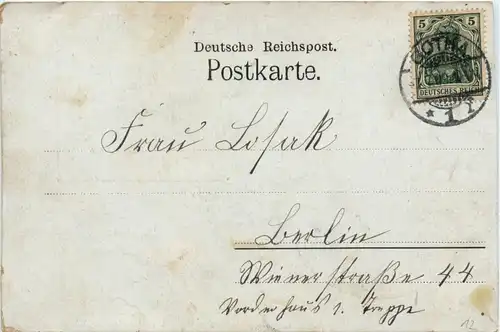 5 5
DEUTSCHES REICH
GOTHA
* 1 *
Deutsche Reichspost.
Postkarte.
Frau Losak
Berlin
Wienerstraße 44
Vorderhaus 1. Treppe
12